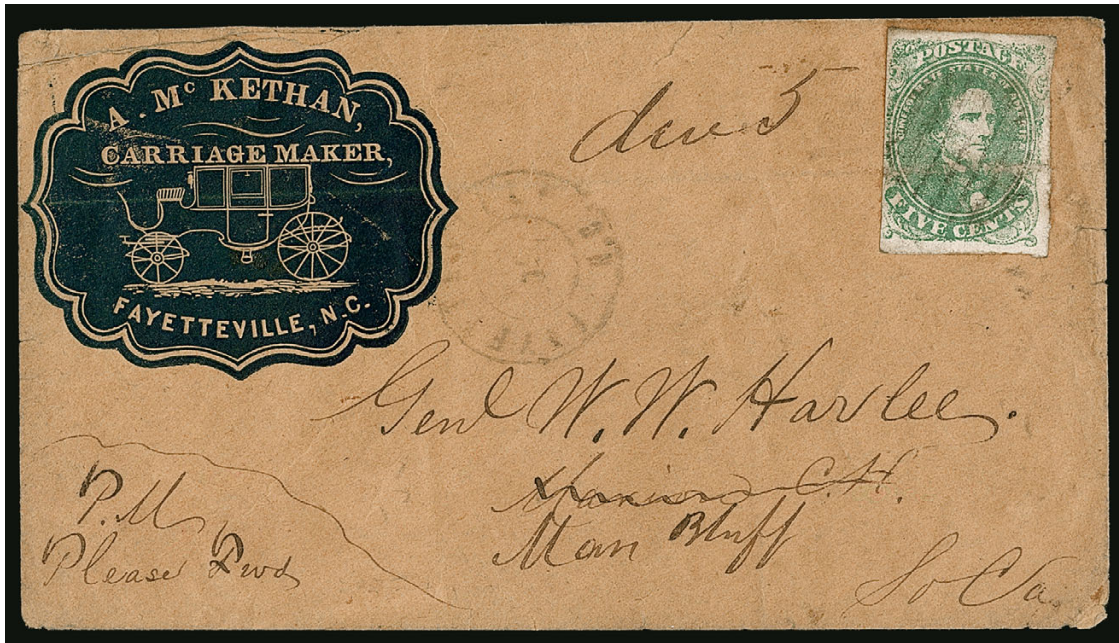 A. Mc KETHAN,
CARRIAGE MAKER,
FAYETTEVILLE, N.C.
due 5
POSTAGE
CONFEDERATE STATES OF AMERICA
FIVE CENTS
Genl W. W. Harlee.
Marion C.H.
Mars Bluff
So Ca
P.M.
Please Fwd